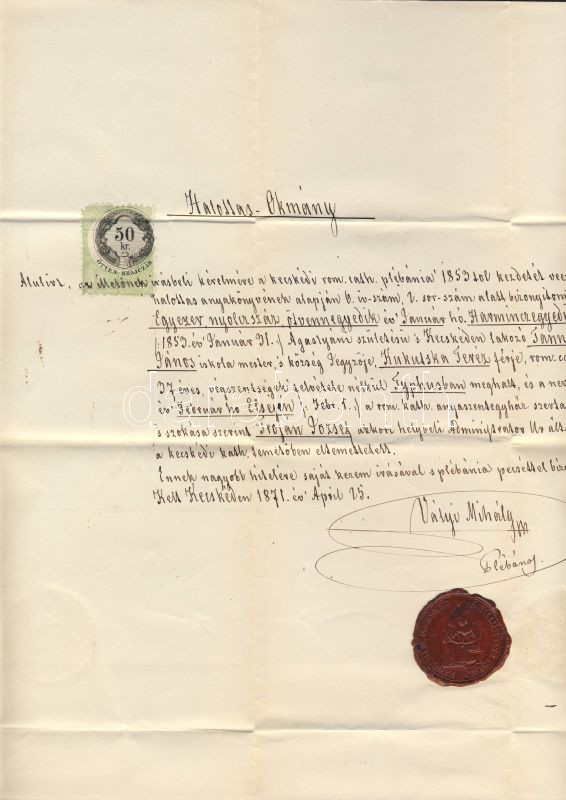 Halottas-Okmány
50
kr.
ÖTVEN KRAJCZÁR
Alulirt, az illetőnek irásbeli kérelmére a kecskédi rom. cath. plébánia 1853 tol kezdetét
halottas anyakönyvének alapján 6. iv-szám, 2. sor-szám alatt bizonyitom
Egyezer, nyolczszáz, ötvennegyedik év Január hó Harminczegyedi
1853. év Január 31. Agostyáni születésü s Kecskéden lakozó
János iskola mester, s község Jegyzője, Kukutska Terez férje, rom. ca
37 éves, végszentségek felvétele nélkül meghalt, és a nev
év Február hó Elsején (Febr. 1.) a rom. kath. anyaszentegyház szerta
s szokása szerint Stojan József akkori helybeli Administrator Ur ált
a kecskédi kath. temetőben eltemettetett.
Ennek nagyobb hitelére saját kezem irásával s plébánia pecséttel bizo
Kelt Kecskéden 1871. év April 25.
Vályi Mihály
Plébános